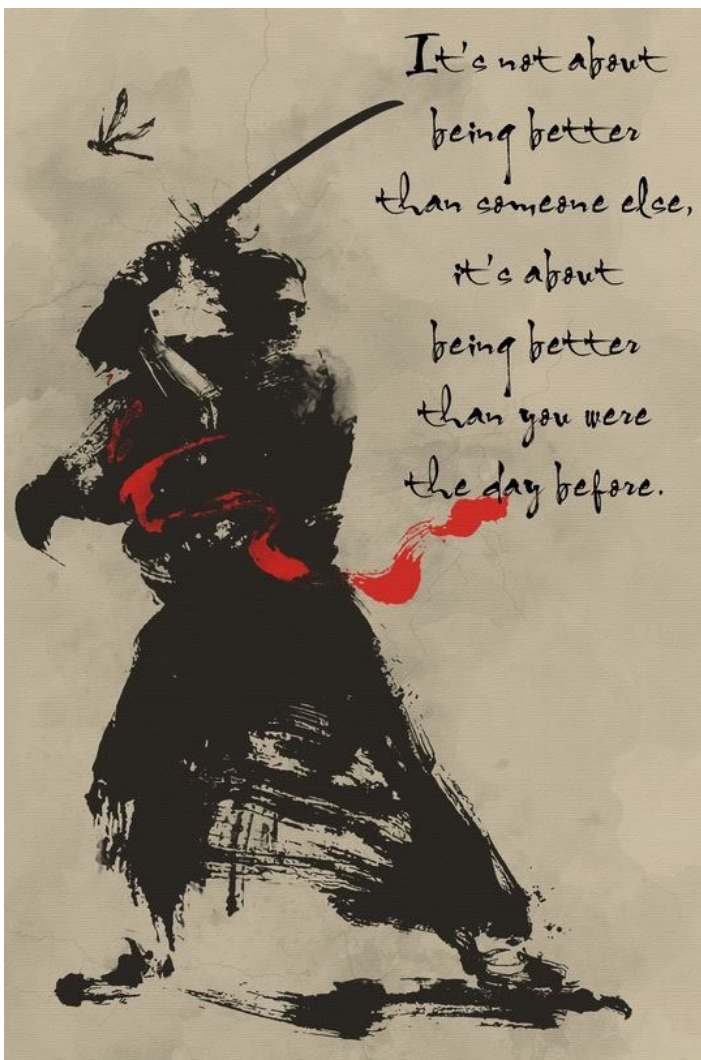 It's not about
being better
than someone else,
it's about
being better
than you were
the day before.